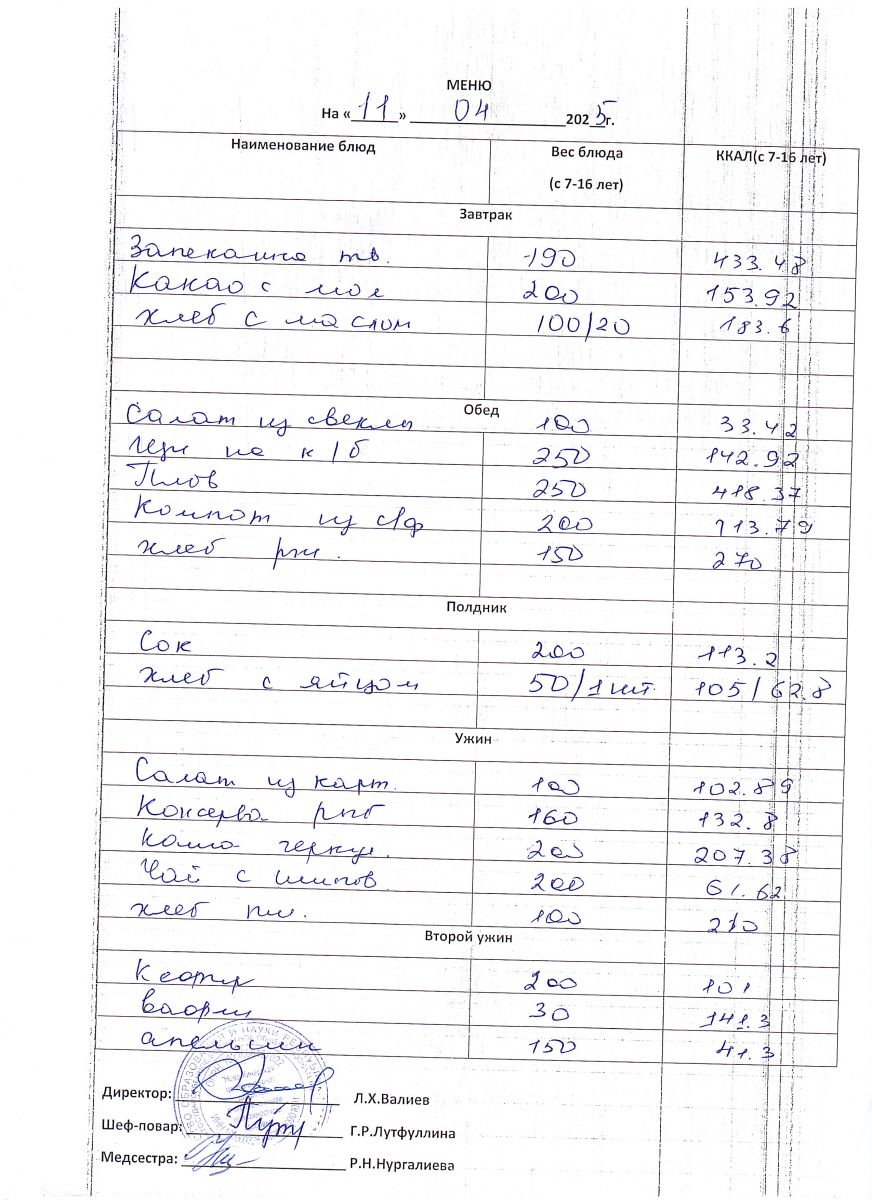 МЕНЮ
На «11» 04 2025г.
Наименование блюд Вес блюда (с 7-16 лет) ККАЛ(с 7-16 лет)
Завтрак
Запеканка тв. 190 433.48
Какао с мол 200 153.92
хлеб с маслом 100/20 183.6
Обед
Салат из свеклы 100 33.42
на к/б 250 142.92
Плов 250 418.37
Компот из с/ф 200 113.79
хлеб рж. 150 270
Полдник
Сок 200 113.2
хлеб с яйцом 50/1шт. 105/62.8
Ужин
Салат из карт. 100 102.89
Консерва рыб 160 132.8
каша геркул. 200 207.38
Чай с шипов. 200 61.62
хлеб пш. 100 210
Второй ужин
Кефир 200 101
вафли 30 141.3
апельсин 150 41.3
Директор: Л.Х.Валиев
Шеф-повар: Г.Р.Лутфуллина
Медсестра: Р.Н.Нургалиева